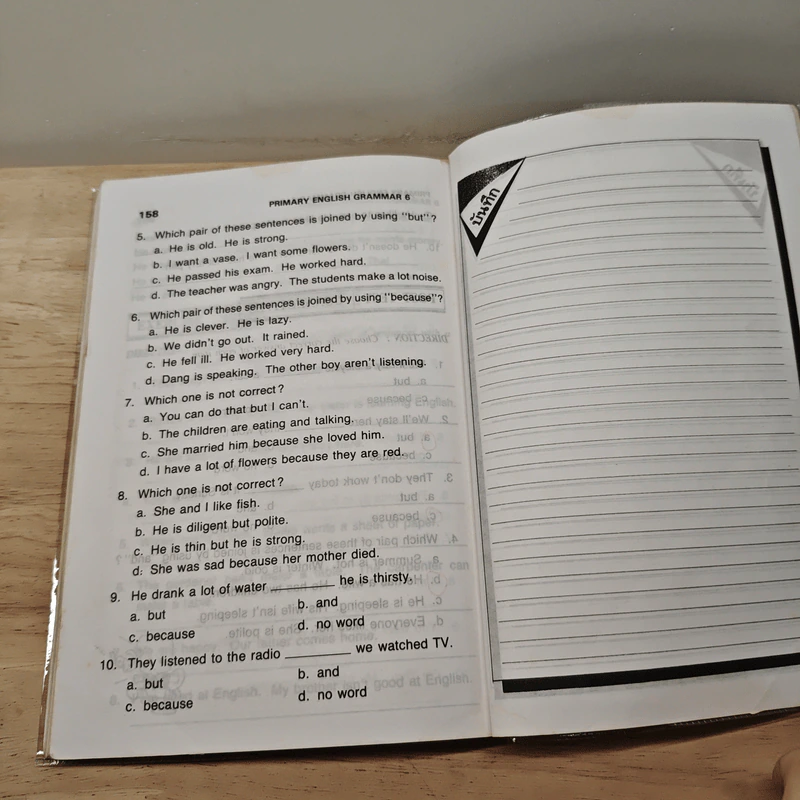 158
PRIMARY ENGLISH GRAMMAR 6
5. Which pair of these sentences is joined by using "but"?
a. He is old. He is strong.
b. I want a vase. I want some flowers.
c. He passed his exam. He worked hard.
d. The teacher was angry. The students make a lot noise.
6. Which pair of these sentences is joined by using "because"?
a. He is clever. He is lazy.
b. We didn't go out. It rained.
c. He fell ill. He worked very hard.
d. Dang is speaking. The other boy aren't listening.
7. Which one is not correct?
a. You can do that but I can't.
b. The children are eating and talking.
c. She married him because she loved him.
d. I have a lot of flowers because they are red.
8. Which one is not correct?
a. She and I like fish.
b. He is diligent but polite.
c. He is thin but he is strong.
d. She was sad because her mother died.
9. He drank a lot of water ________ he is thirsty.
a. but b. and
c. because d. no word
10. They listened to the radio ________ we watched TV.
a. but b. and
c. because d. no word
บันทึก